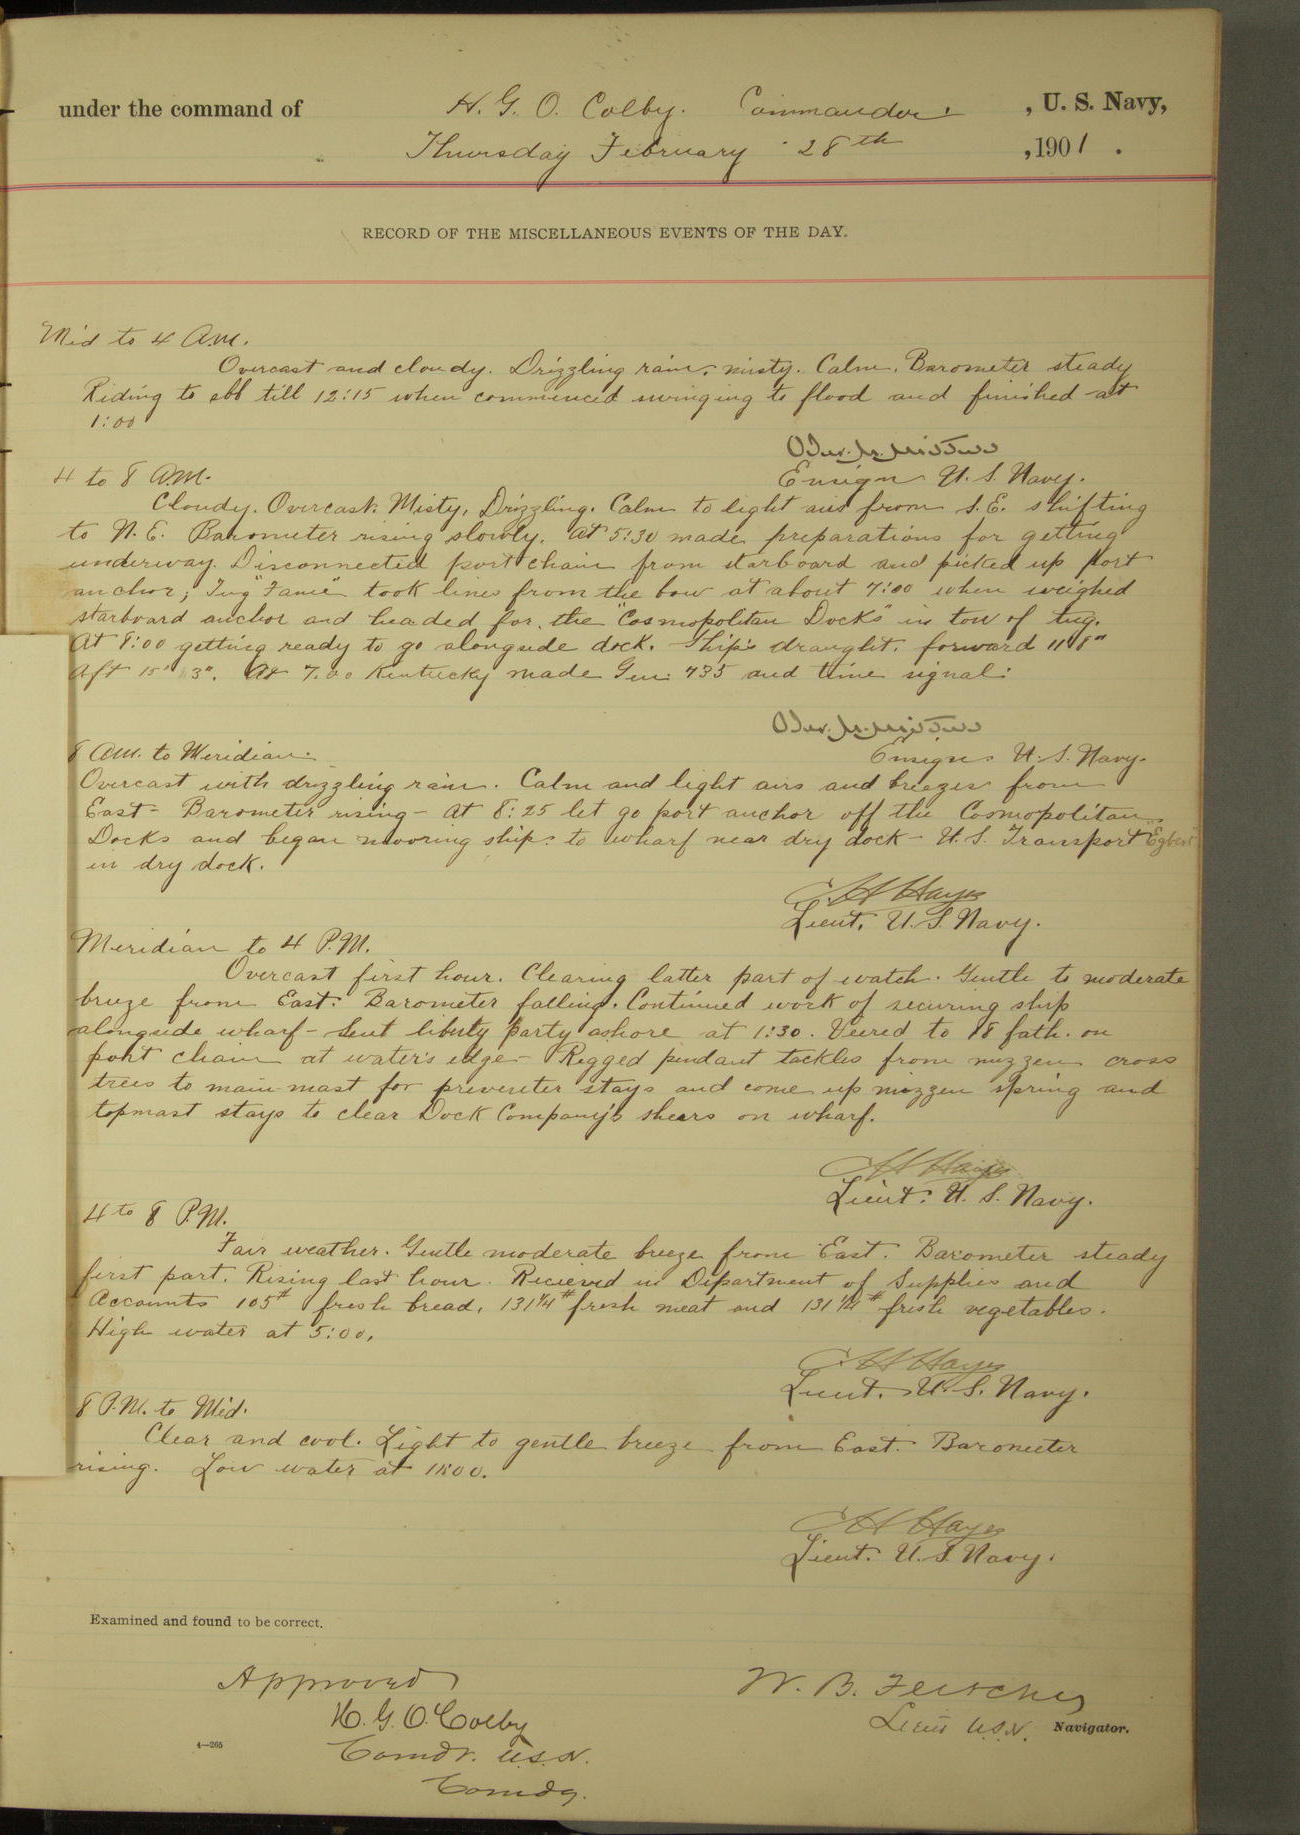 under the command of H. G. O. Colby. Commander. , U. S. Navy,
Thursday February 28th , 1901 .
RECORD OF THE MISCELLANEOUS EVENTS OF THE DAY.
Mid to 4 A.M.
Overcast and cloudy. Drizzling rain, misty. Calm. Barometer steady
Riding to ebb till 12:15 when commenced swinging to flood and finished at
1:00
Ensign U. S. Navy.
4 to 8 A.M.
Cloudy. Overcast. Misty, Drizzling. Calm to light airs from S.E. shifting
to N. E. Barometer rising slowly. At 5:30 made preparations for getting
underway. Disconnected port chain from starboard and picked up port
anchor; Tug "Fame" took lines from the bow at about 7:00 when weighed
starboard anchor and headed for the "Cosmopolitan Docks" in tow of tug.
At 8:00 getting ready to go alongside dock. Ship's draught, forward 11' 8"
Aft 15' 3". At 7.00 Kentucky made Gen: 735 and time signal:
Ensign U. S. Navy.
8 A.M. to Meridian.
Overcast with drizzling rain. Calm and light airs and breezes from
East - Barometer rising - At 8:25 let go port anchor off the Cosmopolitan
Docks and began mooring ship to wharf near dry dock - U. S. Transport "Egbert"
in dry dock.
C H Hayes
Lieut. U. S. Navy.
Meridian to 4 P.M.
Overcast first hour. Clearing latter part of watch. Gentle to moderate
breeze from East. Barometer falling. Continued work of securing ship
alongside wharf - Sent liberty party ashore at 1:30. Veered to 18 fath. on
port chain at water's edge - Rigged pendant tackles from mizzen cross
trees to main mast for preventer stays and come up mizzen spring and
topmast stays to clear Dock Company's shears on wharf.
C H Hayes
Lieut. U. S. Navy.
4 to 8 P.M.
Fair weather. Gentle moderate breeze from East. Barometer steady
first part. Rising last hour. Recieved in Department of Supplies and
Accounts 105# fresh bread, 131 1/4# fresh meat and 131 1/4# fresh vegetables.
High water at 5:00.
C H Hayes
Lieut. U. S. Navy.
8 P.M. to Mid.
Clear and cool. Light to gentle breeze from East. Barometer
rising. Low water at 11:00.
C H Hayes
Lieut. U. S. Navy.
Examined and found to be correct.
Approved
H. G. O. Colby
Comdr. U.S.N.
Comdg.
W. B. Fletcher
Lieut U.S.N. Navigator.
4—265